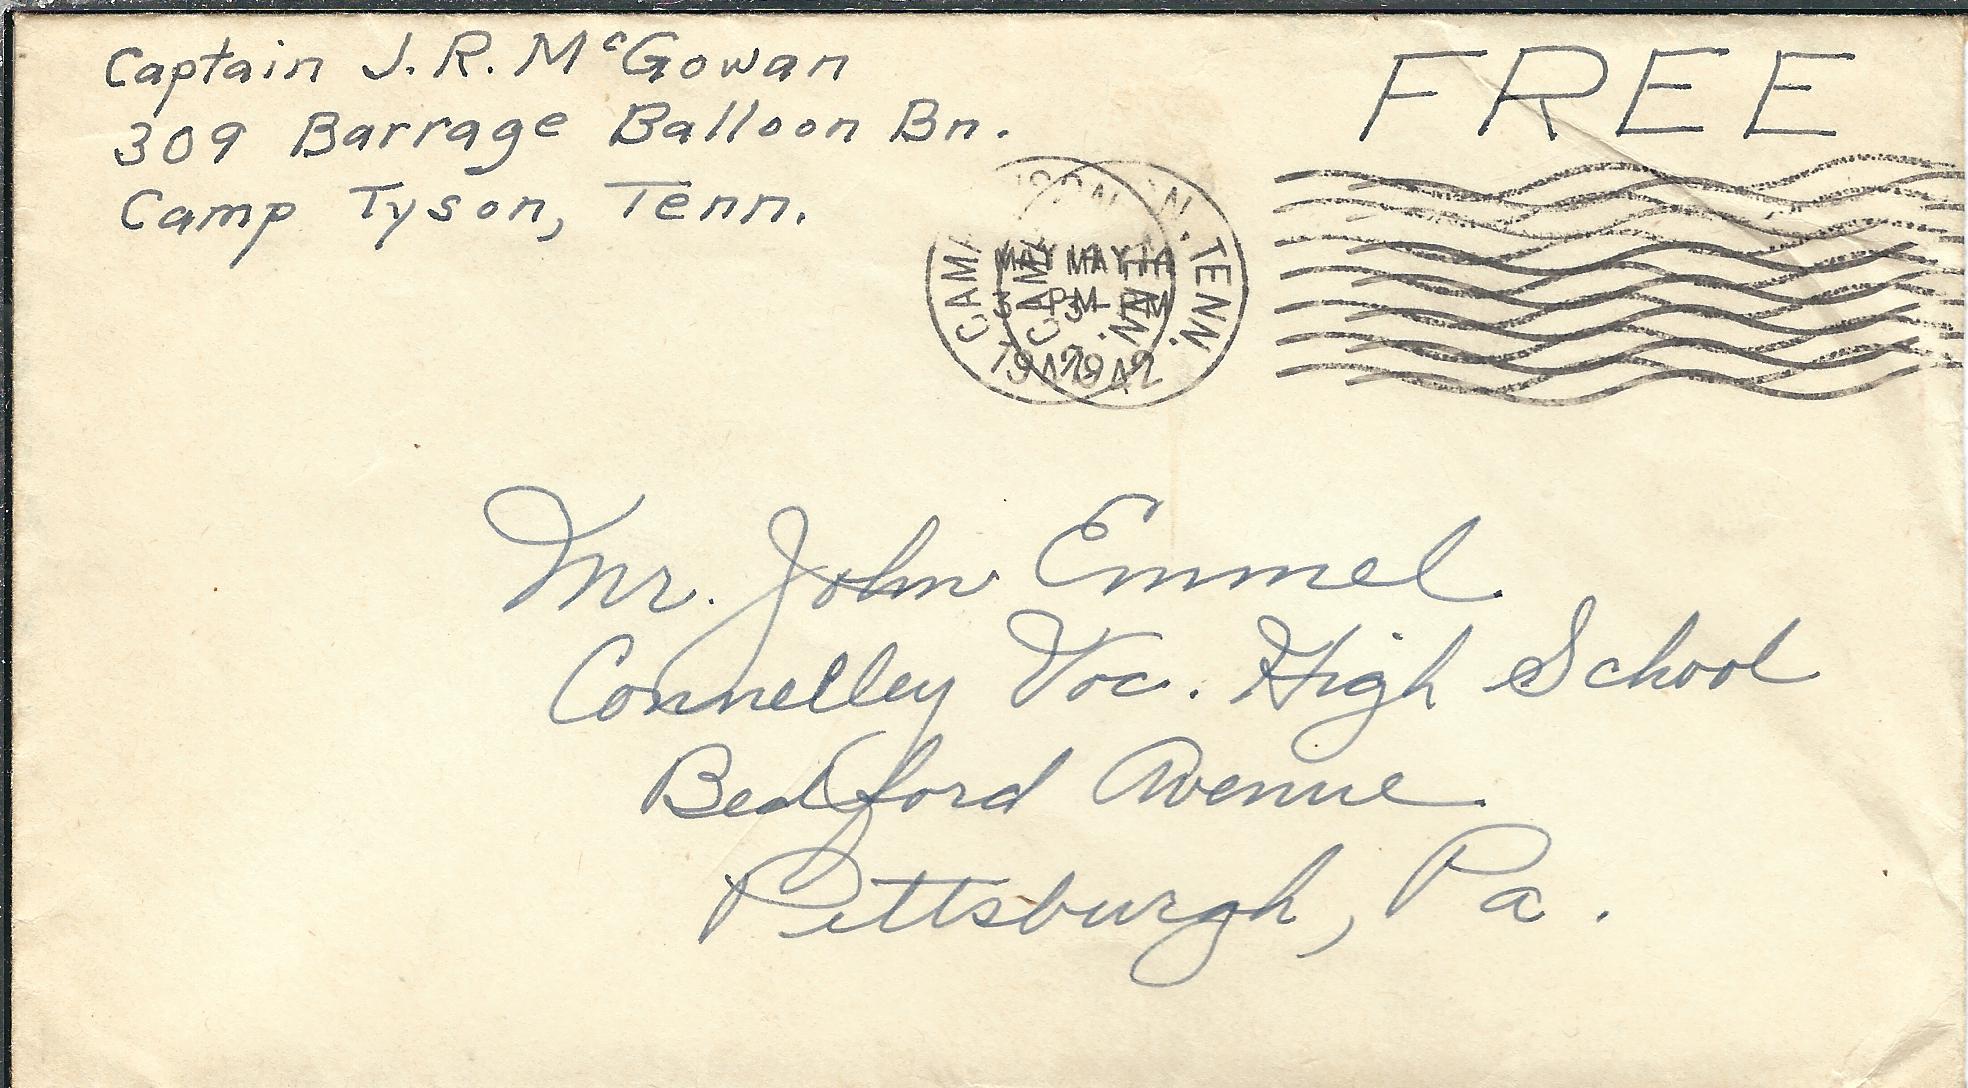 Captain J. R. McGowan
309 Barrage Balloon Bn.
Camp Tyson, Tenn.
FREE
TENN.
MAY MAY 14
3 PM 3 PM
1942 1942
Mr. John Emmel
Connelley Voc. High School
Bedford Avenue
Pittsburgh, Pa.